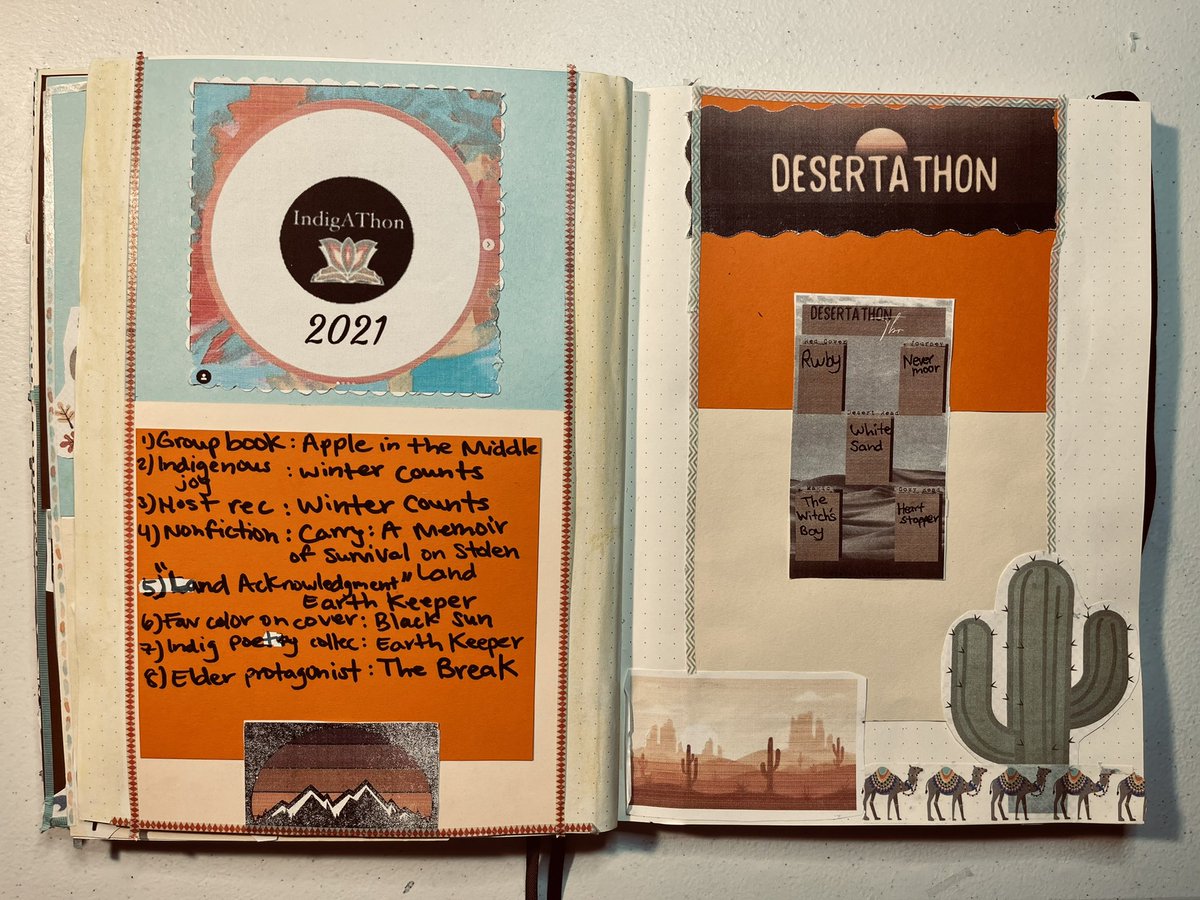 IndigAThon
2021
1) Group book : Apple in the Middle
2) Indigenous joy : Winter Counts
3) Host rec : Winter Counts
4) Nonfiction : Carry: A Memoir
of Survival on Stolen
Land
5) "Land Acknowledgment"
Earth Keeper
6) Fav color on cover: Black Sun
7) Indig poetry collec: Earth Keeper
8) Elder protagonist: The Break
DESERTATHON
DESERTATHON
Tbr
Red Cover
Rwby
Journey
Never
moor
Desert Read
White
Sand
The
Witch's
Boy
Cozy Read
Heart
stopper